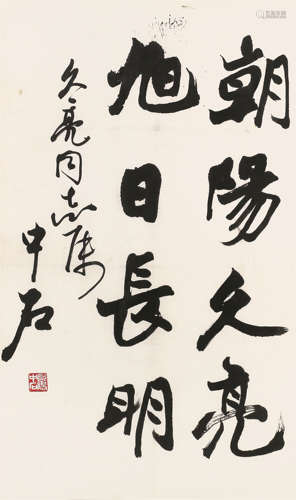 朝陽久亮
旭日長明
久亮同志屬
中石